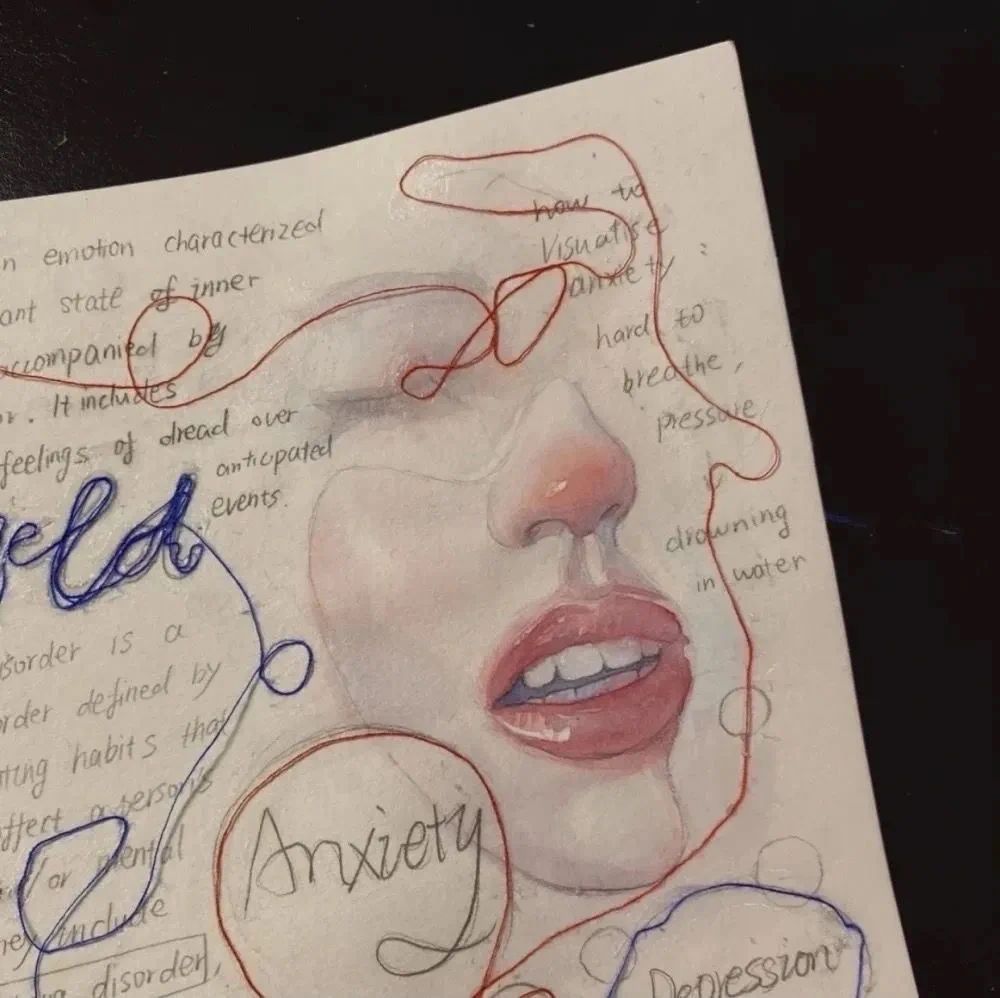 n emotion characterized
ant state of inner
accompanied by
or. It includes
feelings of dread over
anticipated
events.
how to
Visualise
anxiety :
hard to
breathe,
pressure,
drowning
in water
geld
isorder is a
order defined by
ating habits that
affect a person's
or mental
hey include
disorder,
Anxiety
Depression